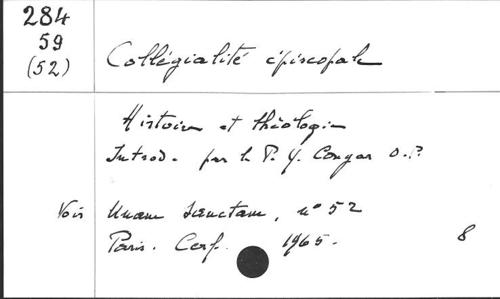 284
59
(52)
Collégialité épiscopale
Histoire et théologie
Introd. par le P. Y. Congar O.P.
Voir Unam Sanctam, n° 52
Paris. Cerf. 1965.
8